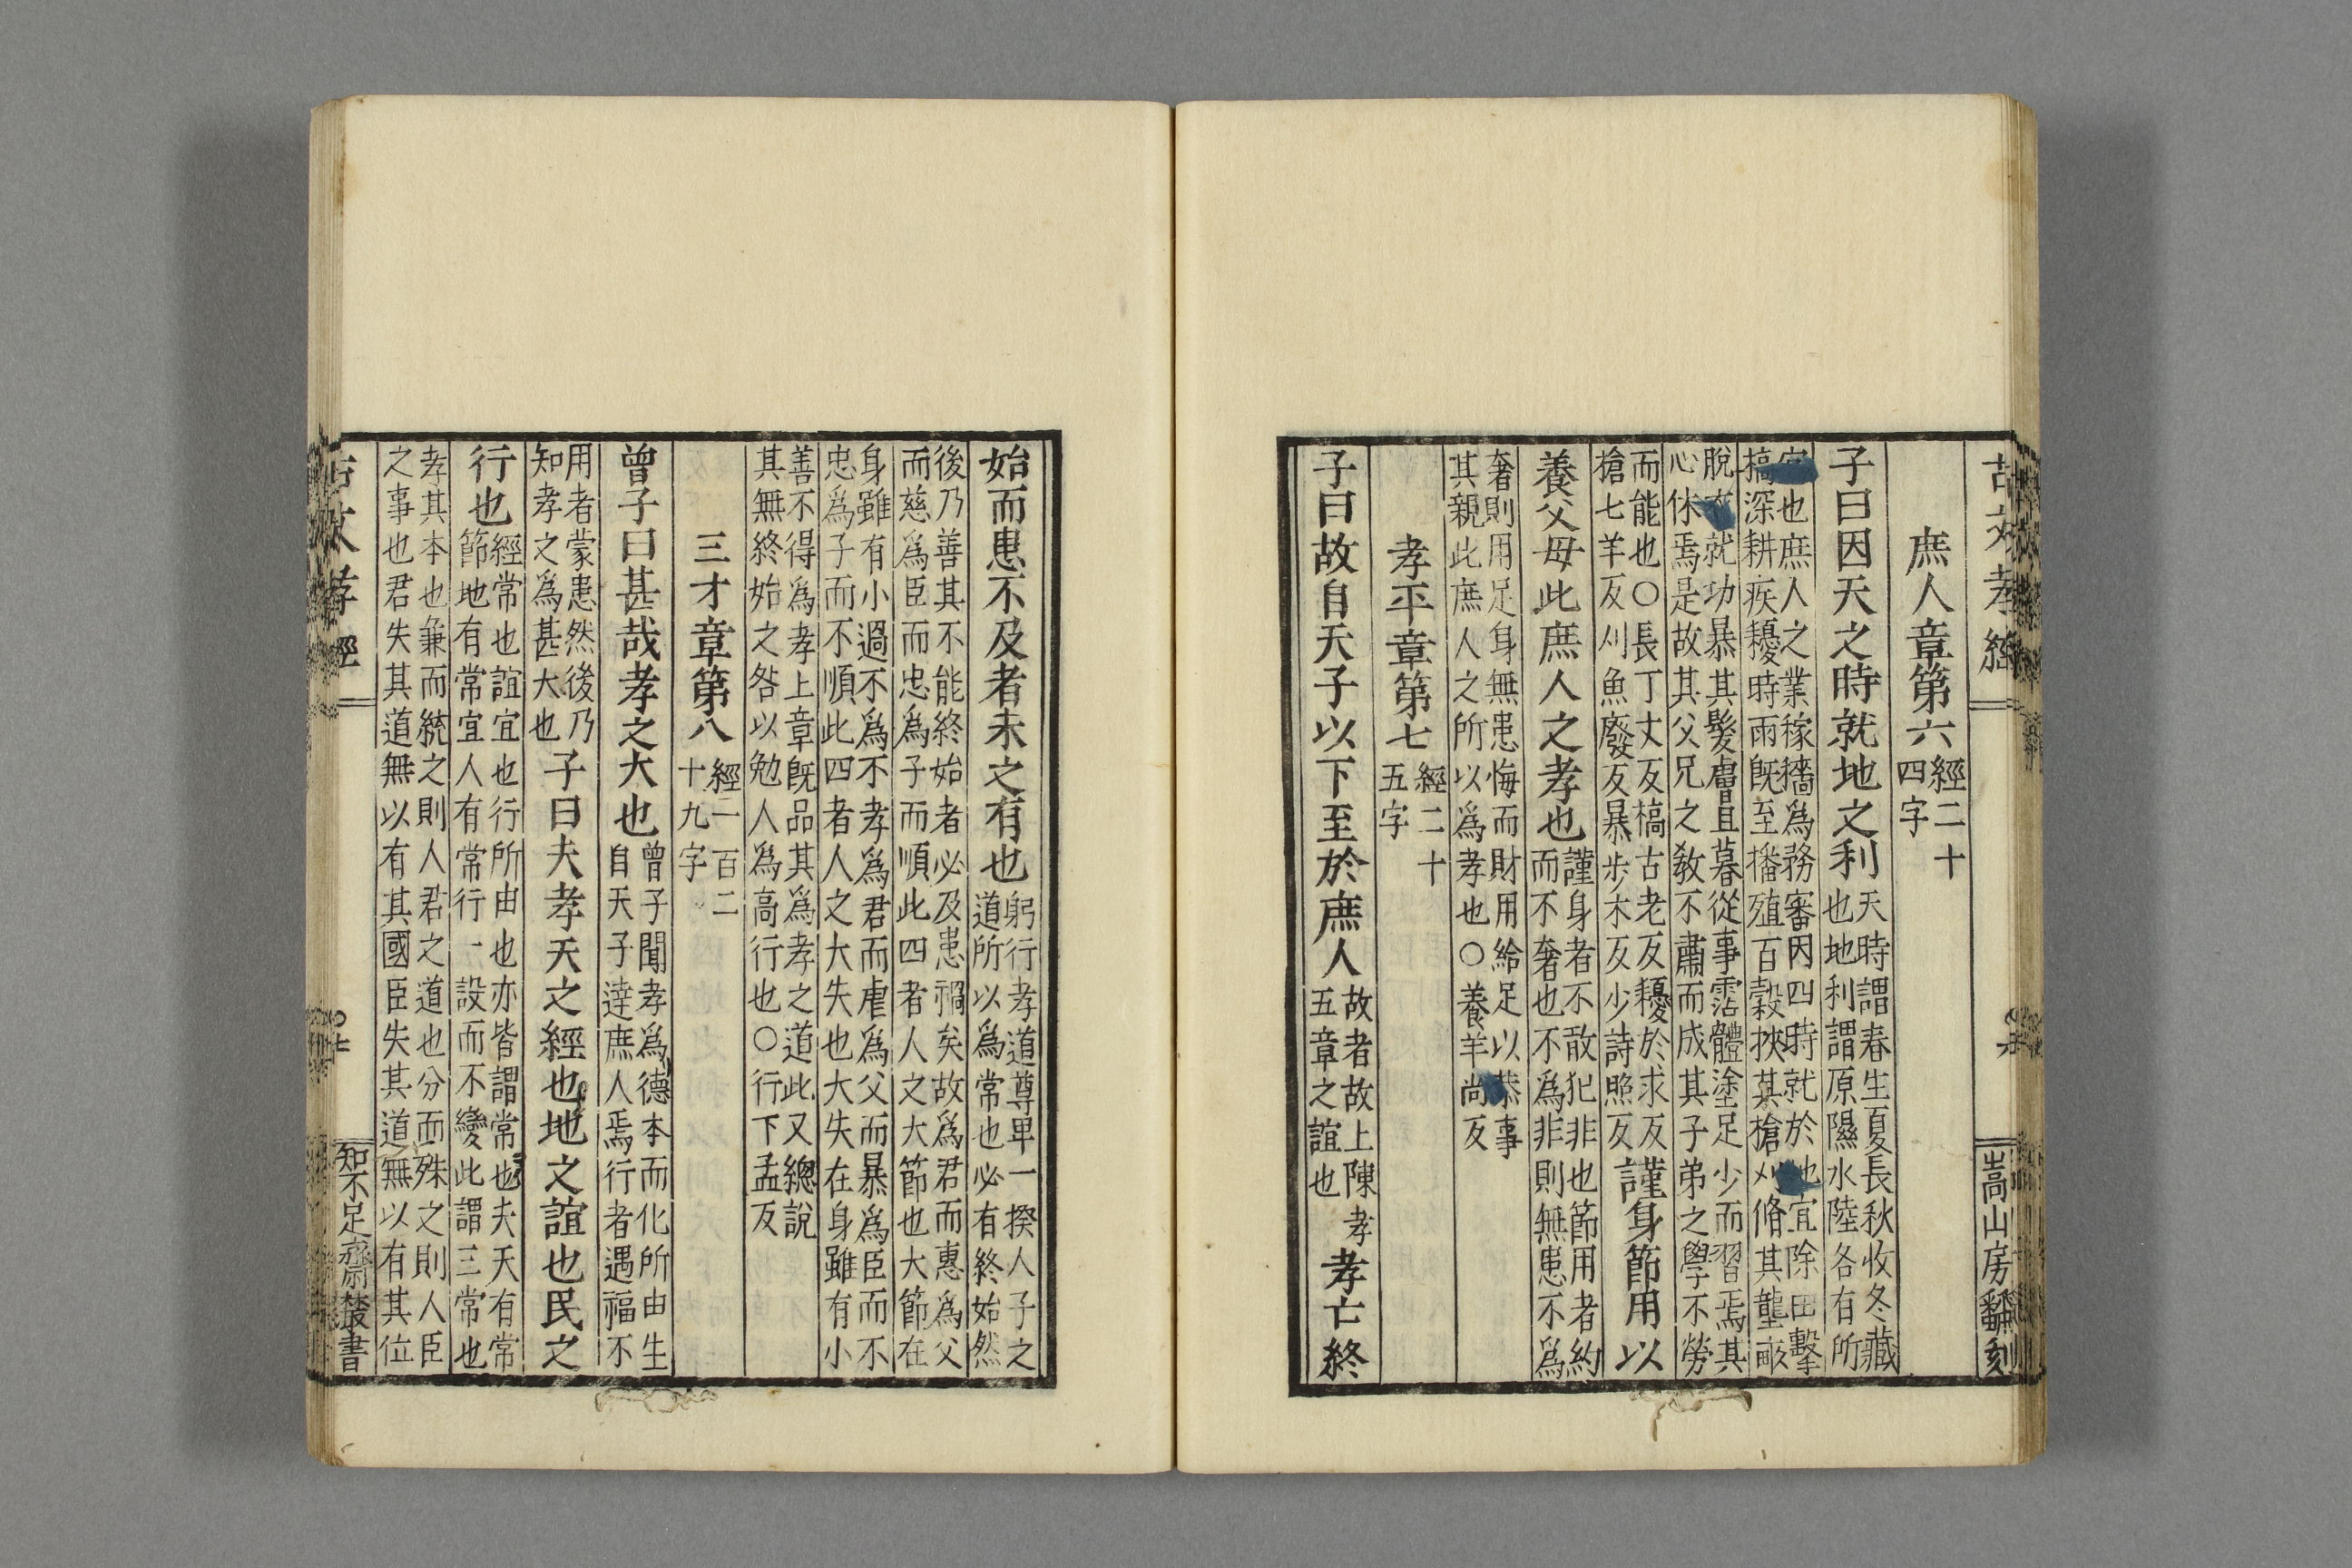 古文孝經 嵩山房翻刻
庶人章第六 經二十四字
子曰因天之時就地之利 天時謂春生夏長秋收冬藏也地利謂原隰水陸各有所
宜也庶人之業稼穡爲務審因四時就於地宜除田擊
槁深耕疾耰時雨既至播殖百穀挾其槍刈脩其壟畝
脫衣就功暴其髮膚旦暮從事霑體塗足少而習焉其
心休焉是故其父兄之敎不肅而成其子弟之學不勞
而能也○長丁丈反槁古老反耰於求反
槍七羊反刈魚廢反暴步木反少詩照反 謹身節用以
養父母此庶人之孝也 謹身者不敢犯非也節用者約而不奢也不爲非則無患不爲
奢則用足身無患悔而財用給足以恭事
其親此庶人之所以爲孝也○養羊尚反
孝平章第七 經二十五字
子曰故自天子以下至於庶人 故者故上陳孝五章之誼也 孝亡終
始而患不及者未之有也 躬行孝道尊卑一揆人子之道所以爲常也必有終始然
後乃善其不能終始者必及患禍矣故爲君而惠爲父
而慈爲臣而忠爲子而順此四者人之大節也大節在
身雖有小過不爲不孝爲君而虐爲父而暴爲臣而不
忠爲子而不順此四者人之大失也大失在身雖有小
善不得爲孝上章旣品其爲孝之道此又總說
其無終始之咎以勉人爲高行也○行下孟反
三才章第八 經一百二十九字
曾子曰甚哉孝之大也 曾子聞孝爲德本而化所由生自天子達庶人焉行者遇福不
用者蒙患然後乃
知孝之爲甚大也 子曰夫孝天之經也地之誼也民之
行也 經常也誼宜也行所由也亦皆謂常也夫天有常節地有常宜人有常行一設而不變此謂三常也
孝其本也兼而統之則人君之道也分而殊之則人臣
之事也君失其道無以有其國臣失其道無以有其位
古文孝經 知不足齋叢書